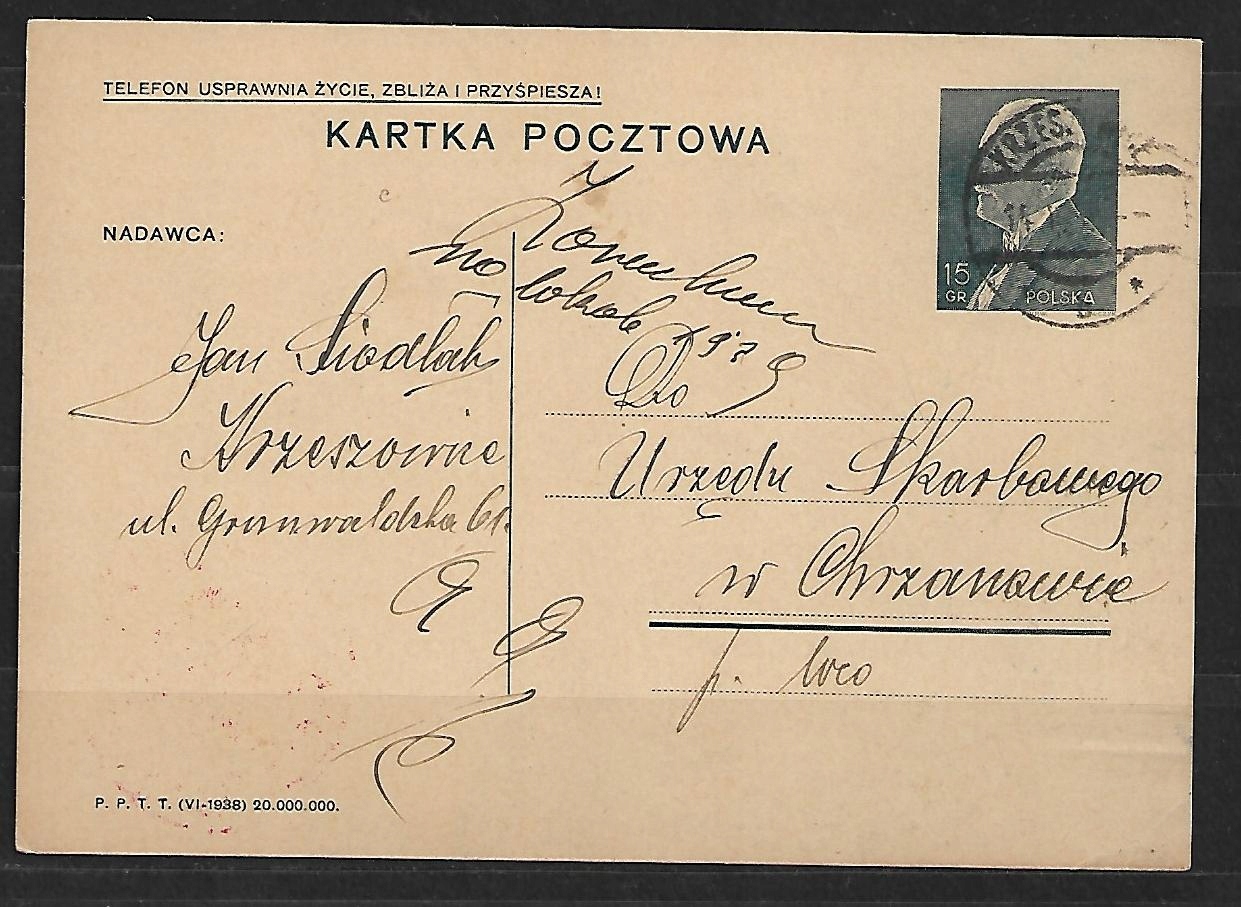 TELEFON USPRAWNIA ŻYCIE, ZBLIŻA I PRZYŚPIESZA!
KARTKA POCZTOWA
15
GR.
POLSKA
KRZES.
NADAWCA:
na lokale
1939
Jan Siodlak
Krzeszowice
ul. Grunwaldzka 61.
Do
Urzędu Skarbowego
w Chrzanowie
p. loco
P. P. T. T. (VI-1938) 20.000.000.